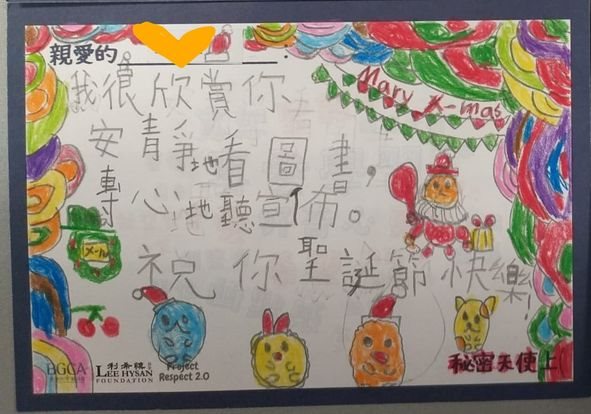 親愛的
Mary X-mas
我很欣賞你
安靜地看圖書，
專心地聽宣佈。
メール
祝你聖誕節快樂!
BGCA
利希慎
LEE HYSAN
FOUNDATION
Project
Respect 2.0
秘密天使上